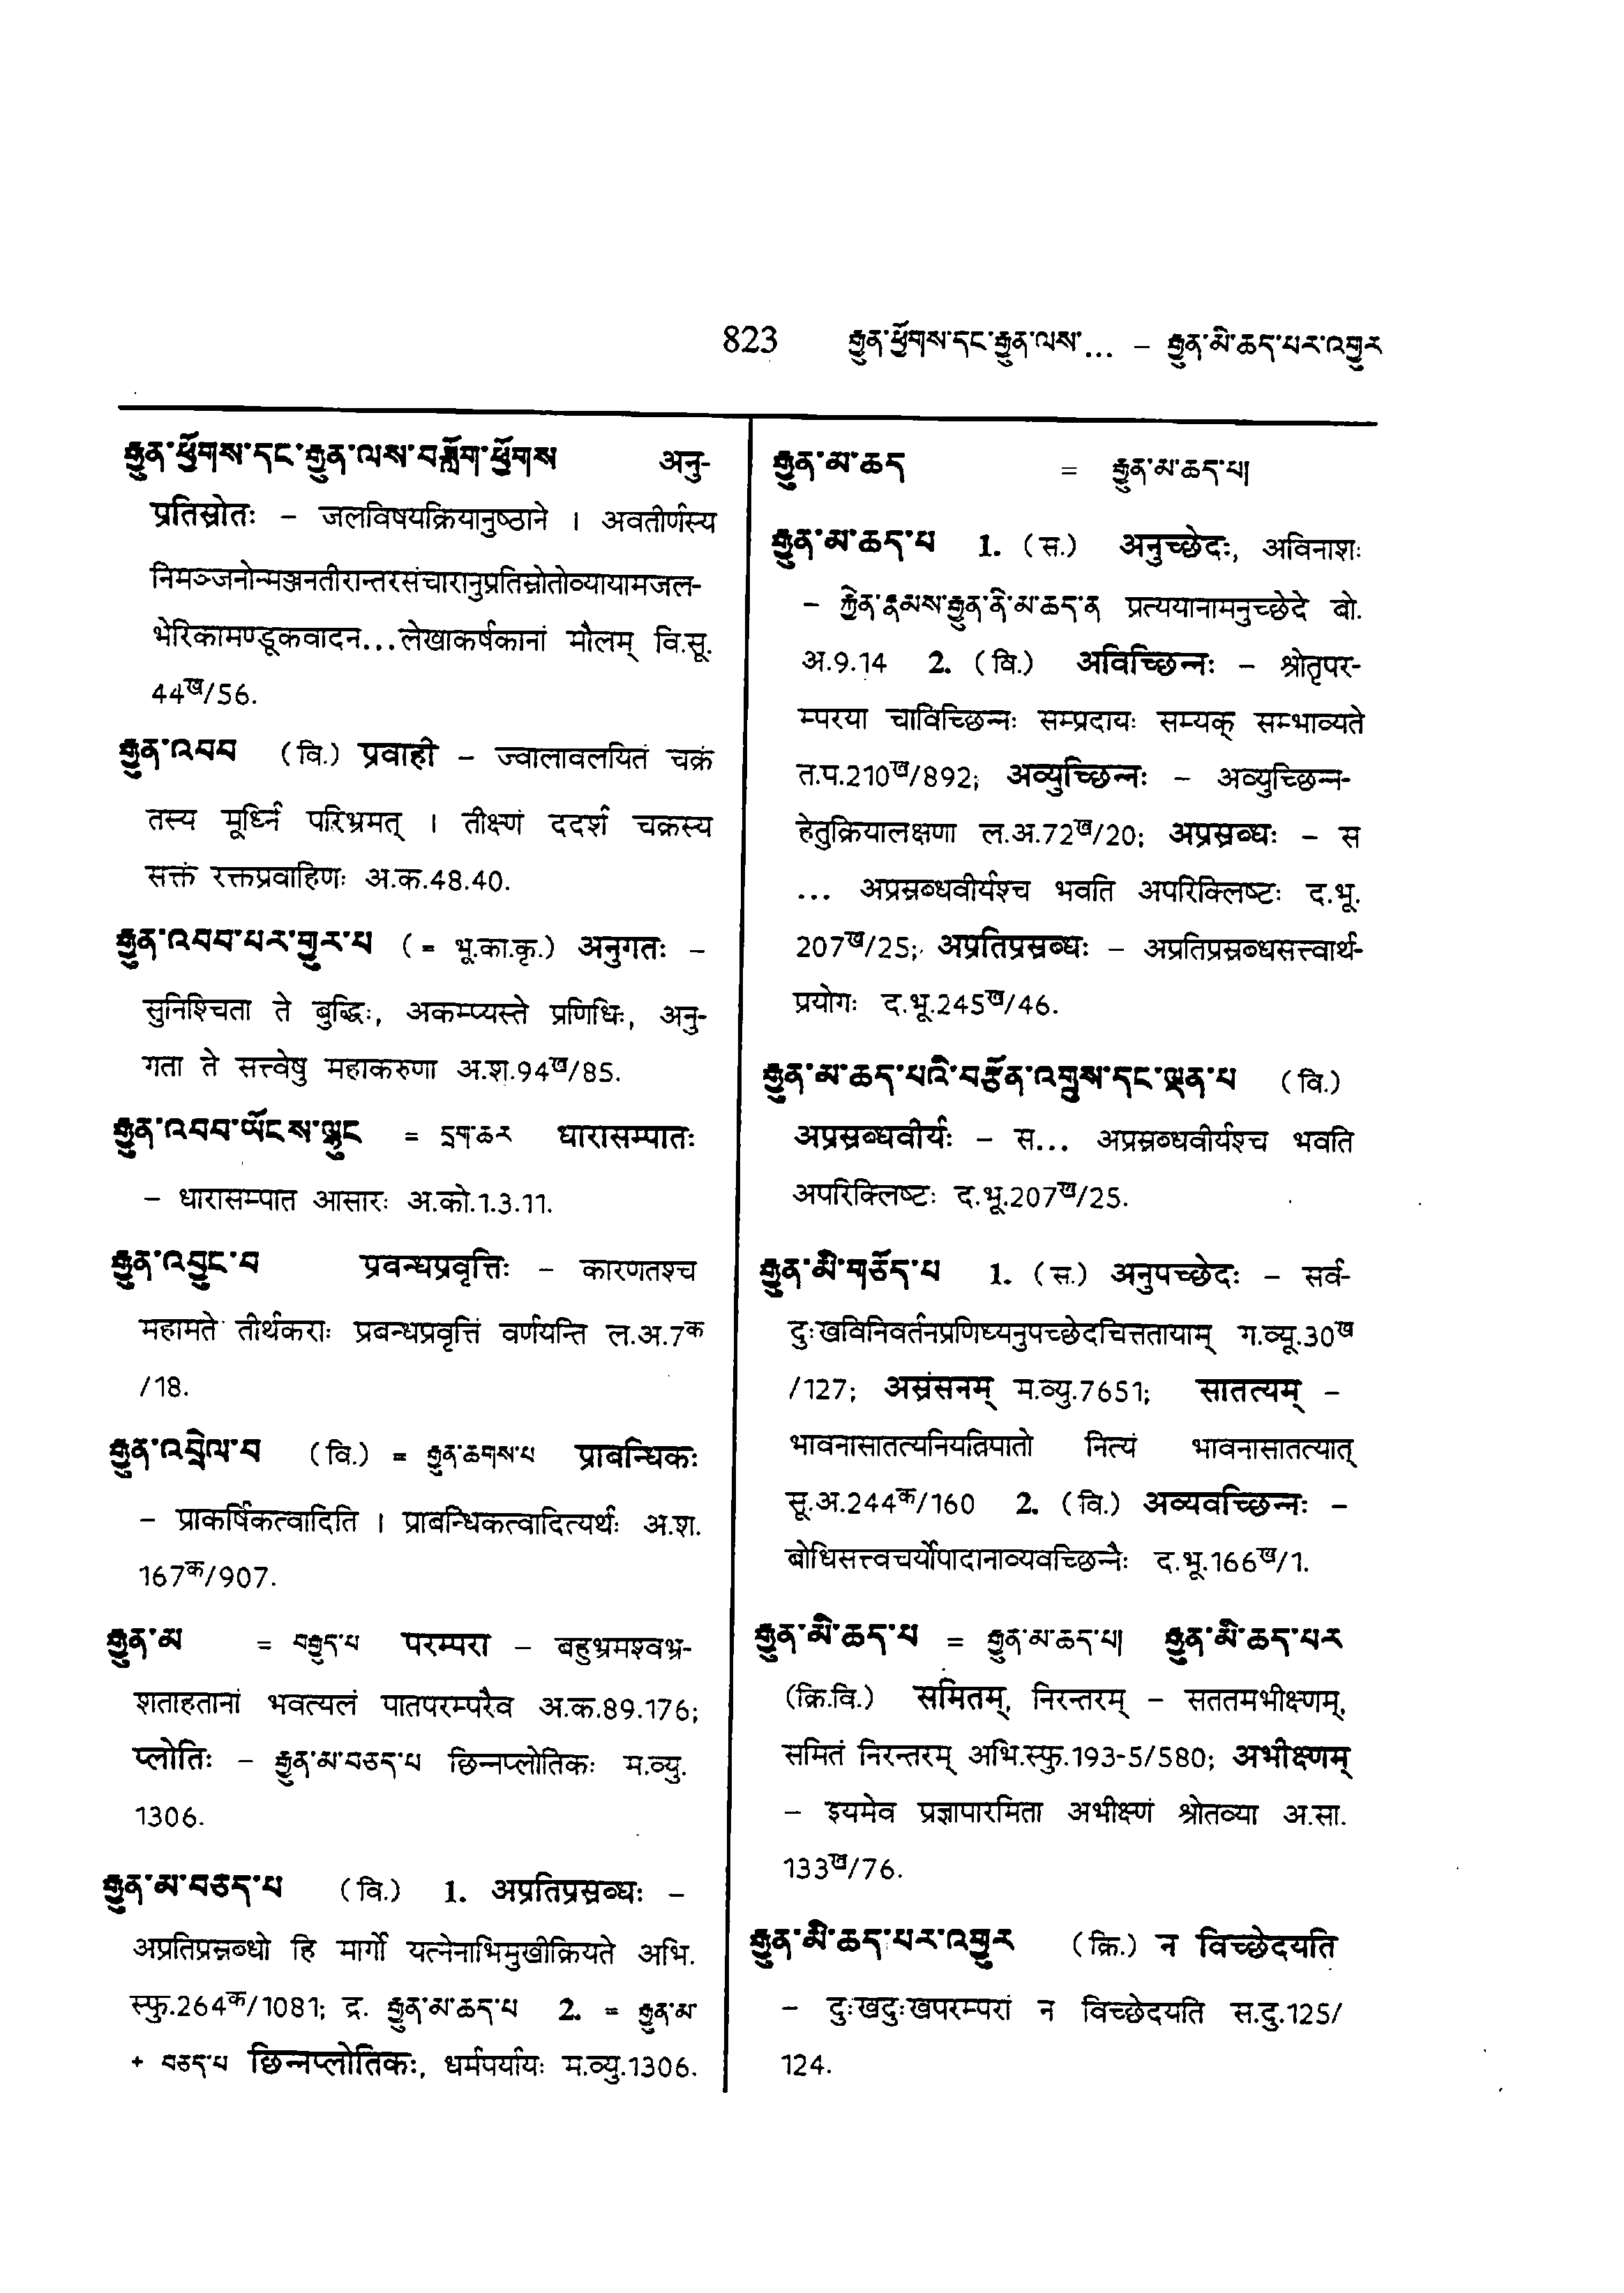 823 རྒྱུན་ཕྱོགས་དང་རྒྱུན་ལས་... – རྒྱུན་མི་ཆད་པར་འགྱུར
རྒྱུན་ཕྱོགས་དང་རྒྱུན་ལས་བཟློག་ཕྱོགས अनु-
प्रतिस्रोतः – जलविषयक्रियानुष्ठाने । अवतीर्णस्य
निमञ्जनोन्मञ्जनतीरान्तरसंचारानुप्रतिस्रोतोव्यायामजल-
भेरिकामण्डूकवादन...लेखाकर्षकानां मौलम् वि.सू.
44ख/56.
རྒྱུན་འབབ (वि.) प्रवाही – ज्वालावलयितं चक्रं
तस्य मूर्ध्नि परिभ्रमत् । तीक्ष्णं ददर्श चक्रस्य
सक्तं रक्तप्रवाहिणः अ.क.48.40.
རྒྱུན་འབབ་པར་གྱུར་པ (= भू.का.कृ.) अनुगतः –
सुनिश्चिता ते बुद्धिः, अकम्प्यस्ते प्रणिधिः, अनु-
गता ते सत्त्वेषु महाकरुणा अ.श.94ख/85.
རྒྱུན་འབབ་ཡོངས་ལྷུང = དྲག་ཆར धारासम्पातः
– धारासम्पात आसारः अ.को.1.3.11.
རྒྱུན་འབྱུང་བ प्रवन्धप्रवृत्तिः – कारणतश्च
महामते तीर्थकराः प्रबन्धप्रवृत्तिं वर्णयन्ति ल.अ.7क
/18.
རྒྱུན་འབྲེལ་བ (वि.) = རྒྱུན་ཆགས་པ प्राबन्धिकः
– प्राकर्षिकत्वादिति । प्राबन्धिकत्वादित्यर्थः अ.श.
167क/907.
རྒྱུན་མ = བརྒྱུད་པ परम्परा – बहुभ्रमश्वभ्र-
शताहतानां भवत्यलं पातपरम्परैव अ.क.89.176;
प्लोतिः – རྒྱུན་མ་བཅད་པ छिन्नप्लोतिकः म.व्यु.
1306.
རྒྱུན་མ་བཅད་པ (वि.) 1. अप्रतिप्रस्रब्धः –
अप्रतिप्रस्रब्धो हि मार्गो यत्नेनाभिमुखीक्रियते अभि.
स्फु.264क/1081; द्र. རྒྱུན་མ་ཆད་པ 2. = རྒྱུན་མ
+ བཅད་པ छिन्नप्लोतिकः, धर्मपर्यायः म.व्यु.1306.
རྒྱུན་མ་ཆད = རྒྱུན་མ་ཆད་པ།
རྒྱུན་མ་ཆད་པ 1. (स.) अनुच्छेदः, अविनाशः
– རྐྱེན་རྣམས་རྒྱུན་ནི་མ་ཆད་ན प्रत्ययानामनुच्छेदे बो.
अ.9.14 2. (वि.) अविच्छिन्नः – श्रोतृपर-
म्परया चाविच्छिन्नः सम्प्रदायः सम्यक् सम्भाव्यते
त.प.210ख/892; अव्युच्छिन्नः – अव्युच्छिन्न-
हेतुक्रियालक्षणा ल.अ.72ख/20; अप्रस्रब्धः – स
... अप्रस्रब्धवीर्यश्च भवति अपरिक्लिष्टः द.भू.
207ख/25; अप्रतिप्रस्रब्धः – अप्रतिप्रस्रब्धसत्त्वार्थ-
प्रयोगः द.भू.245ख/46.
རྒྱུན་མ་ཆད་པའི་བརྩོན་འགྲུས་དང་ལྡན་པ (वि.)
अप्रस्रब्धवीर्यः – स... अप्रस्रब्धवीर्यश्च भवति
अपरिक्लिष्टः द.भू.207ख/25.
རྒྱུན་མི་གཅོད་པ 1. (स.) अनुपच्छेदः – सर्व-
दुःखविनिवर्तनप्रणिध्यनुपच्छेदचित्ततायाम् ग.व्यू.30ख
/127; अस्रंसनम् म.व्यु.7651; सातत्यम् –
भावनासातत्यनियतिपातो नित्यं भावनासातत्यात्
सू.अ.244क/160 2. (वि.) अव्यवच्छिन्नः –
बोधिसत्त्वचर्योपादानाव्यवच्छिन्नैः द.भू.166ख/1.
རྒྱུན་མི་ཆད་པ = རྒྱུན་མ་ཆད་པ། རྒྱུན་མི་ཆད་པར
(क्रि.वि.) समितम्, निरन्तरम् – सततमभीक्ष्णम्,
समितं निरन्तरम् अभि.स्फु.193-5/580; अभीक्ष्णम्
– इयमेव प्रज्ञापारमिता अभीक्ष्णं श्रोतव्या अ.सा.
133ख/76.
རྒྱུན་མི་ཆད་པར་འགྱུར (क्रि.) न विच्छेदयति
– दुःखदुःखपरम्परां न विच्छेदयति स.दु.125/
124.